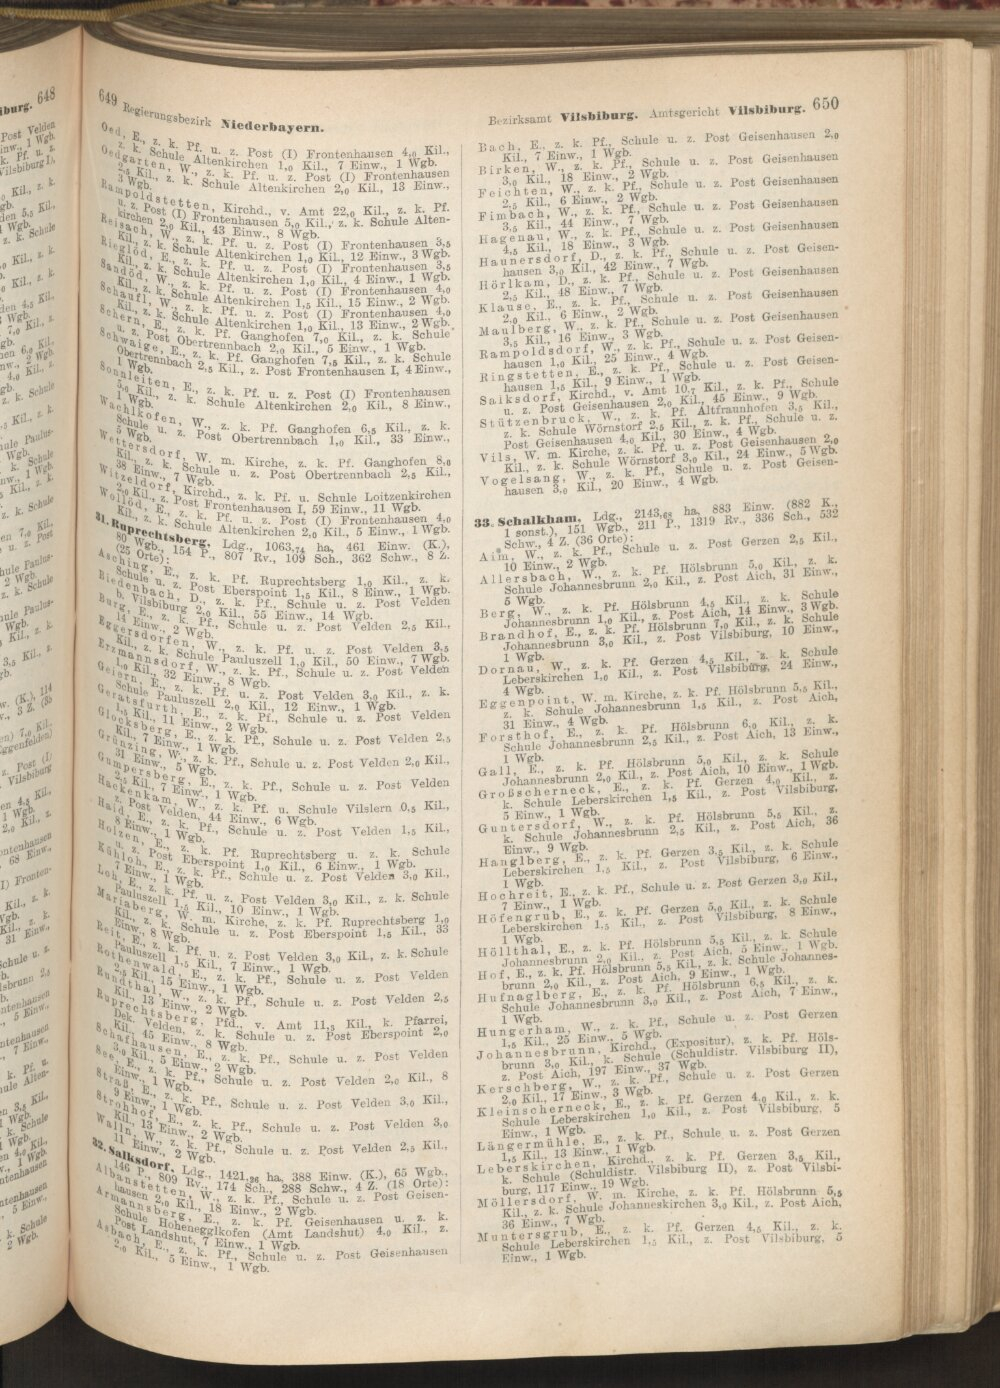 649 Regierungsbezirk Niederbayern.
Oed, E., z. k. Pf. u. z. Post (I) Frontenhausen 4,0 Kil.,
z. k. Schule Altenkirchen 1,0 Kil., 7 Einw., 1 Wgb.
Oedgarten, W., z. k. Pf. u. z. Post (I) Frontenhausen
2,5 Kil., z. k. Schule Altenkirchen 2,0 Kil., 13 Einw.,
3 Wgb.
Rampoldstetten, Kirchd., v. Amt 22,0 Kil., z. k. Pf.
u. z. Post (I) Frontenhausen 5,0 Kil., z. k. Schule Alten-
kirchen 2,0 Kil., 43 Einw., 8 Wgb.
Reisach, W., z. k. Pf. u. z. Post (I) Frontenhausen 3,5
Kil., z. k. Schule Altenkirchen 1,0 Kil., 12 Einw., 3 Wgb.
Rieglöd, E., z. k. Pf. u. z. Post (I) Frontenhausen 3,5
Kil., z. k. Schule Altenkirchen 1,0 Kil., 4 Einw., 1 Wgb.
Sandöd, W., z. k. Pf. u. z. Post (I) Frontenhausen 4,0
Kil., z. k. Schule Altenkirchen 1,5 Kil., 15 Einw., 2 Wgb.
Schaufl, W., z. k. Pf. u. z. Post (I) Frontenhausen 4,0
Kil., z. k. Schule Altenkirchen 1,0 Kil., 13 Einw., 2 Wgb.
Schern, E., z. k. Pf. Ganghofen 7,0 Kil., z. k. Schule
u. z. Post Obertrennbach 2,0 Kil., 5 Einw., 1 Wgb.
Schwaige, E., z. k. Pf. Ganghofen 7,5 Kil., z. k. Schule
Obertrennbach 2,5 Kil., z. Post Frontenhausen I, 4 Einw.,
1 Wgb.
Sonnleiten, E., z. k. Pf. u. z. Post (I) Frontenhausen
5,0 Kil., z. k. Schule Altenkirchen 2,0 Kil., 8 Einw.,
1 Wgb.
Wachlkofen, W., z. k. Pf. Ganghofen 6,5 Kil., z. k.
Schule u. z. Post Obertrennbach 1,0 Kil., 33 Einw.,
5 Wgb.
Wettersdorf, W. m. Kirche, z. k. Pf. Ganghofen 8,0
Kil., z. k. Schule u. z. Post Obertrennbach 2,5 Kil.,
38 Einw., 7 Wgb.
Witzeldorf, Kirchd., z. k. Pf. u. Schule Loitzenkirchen
2,0 Kil., z. Post Frontenhausen I, 59 Einw., 11 Wgb.
Wollöd, E., z. k. Pf. u. z. Post (I) Frontenhausen 4,0
Kil., z. k. Schule Altenkirchen 2,0 Kil., 5 Einw., 1 Wgb.
31. Ruprechtsberg, Ldg., 1063,74 ha, 461 Einw. (K.),
80 Wgb., 154 P., 807 Rv., 109 Sch., 362 Schw., 8 Z.
(25 Orte):
Asching, E., z. k. Pf. Ruprechtsberg 1,0 Kil., z. k.
Schule u. z. Post Eberspoint 1,5 Kil., 8 Einw., 1 Wgb.
Biedenbach, D., z. k. Pf., Schule u. z. Post Velden
b. Vilsbiburg 2,0 Kil., 55 Einw., 14 Wgb.
Burg, E., z. k. Pf., Schule u. z. Post Velden 2,5 Kil.,
14 Einw., 2 Wgb.
Eggersdorfen, W., z. k. Pf. u. z. Post Velden 3,5
Kil., z. k. Schule Pauluszell 1,0 Kil., 50 Einw., 7 Wgb.
Erzmannsdorf, W., z. k. Pf., Schule u. z. Post Velden
1,0 Kil., 32 Einw., 8 Wgb.
Geiern, E., z. k. Pf. u. z. Post Velden 3,0 Kil., z. k.
Schule Pauluszell 2,0 Kil., 12 Einw., 1 Wgb.
Geratsfurth, E., z. k. Pf., Schule u. z. Post Velden
1,5 Kil., 11 Einw., 2 Wgb.
Glocksberg, E., z. k. Pf., Schule u. z. Post Velden 2,5
Kil., 7 Einw., 1 Wgb.
Grünzing, W., z. k. Pf., Schule u. z. Post Velden 2,0 Kil.,
31 Einw., 5 Wgb.
Gumpersberg, E., z. k. Pf., Schule u. z. Post Velden
2,5 Kil., 7 Einw., 1 Wgb.
Hackenkam, W., z. k. Pf. u. Schule Vilslern 0,5 Kil.,
z. Post Velden, 44 Einw., 6 Wgb.
Haid, E., z. k. Pf., Schule u. z. Post Velden 1,5 Kil.,
8 Einw., 1 Wgb.
Holzen, E., z. k. Pf. Ruprechtsberg u. z. k. Schule
u. z. Post Eberspoint 1,0 Kil., 6 Einw., 1 Wgb.
Kühloh, E., z. k. Pf., Schule u. z. Post Velden 3,0 Kil.,
7 Einw., 1 Wgb.
Loh, E., z. k. Pf. u. z. Post Velden 3,0 Kil., z. k. Schule
Pauluszell 1,5 Kil., 10 Einw., 1 Wgb.
Mariaberg, W. m. Kirche, z. k. Pf. Ruprechtsberg 1,0
Kil., z. k. Schule u. z. Post Eberspoint 1,5 Kil., 33
Einw., 8 Wgb.
Reit, E., z. k. Pf. u. z. Post Velden 3,0 Kil., z. k. Schule
Pauluszell 1,5 Kil., 7 Einw., 1 Wgb.
Rothenwald, E., z. k. Pf., Schule u. z. Post Velden
2,5 Kil., 15 Einw., 1 Wgb.
Rundthal, W., z. k. Pf., Schule u. z. Post Velden 2,5
Kil., 13 Einw., 2 Wgb.
Ruprechtsberg, Pfd., v. Amt 11,5 Kil., k. Pfarrei,
Dek. Velden, z. k. Schule u. z. Post Eberspoint 2,0
Kil., 45 Einw., 8 Wgb.
Schafhausen, E., z. k. Pf., Schule u. z. Post Velden
3,0 Kil., 5 Einw., 2 Wgb.
See, E., z. k. Pf., Schule u. z. Post Velden 2,0 Kil., 8
Einw., 1 Wgb.
Straß, E., z. k. Pf., Schule u. z. Post Velden 3,0 Kil.,
9 Einw., 1 Wgb.
Strohhof, E., z. k. Pf., Schule u. z. Post Velden 3,0
Kil., 13 Einw., 2 Wgb.
Walln, W., z. k. Pf., Schule u. z. Post Velden 2,5 Kil.,
11 Einw., 2 Wgb.
32. Salksdorf, Ldg., 1421,26 ha, 388 Einw. (K.), 65 Wgb.,
146 P., 809 Rv., 174 Sch., 288 Schw., 4 Z. (18 Orte):
Albanstetten, W., z. k. Pf., Schule u. z. Post Geisen-
hausen 2,0 Kil., 18 Einw., 2 Wgb.
Armannsberg, E., z. k. Pf. Geisenhausen u. z. k.
Schule Hohenegglkofen (Amt Landshut) 4,0 Kil., z.
Post Landshut, 7 Einw., 1 Wgb.
Asbach, E., z. k. Pf., Schule u. z. Post Geisenhausen
2,0 Kil., 5 Einw., 1 Wgb.
Bezirksamt Vilsbiburg. Amtsgericht Vilsbiburg. 650
Bach, E., z. k. Pf., Schule u. z. Post Geisenhausen 2,0
Kil., 7 Einw., 1 Wgb.
Birken, W., z. k. Pf., Schule u. z. Post Geisenhausen
3,0 Kil., 18 Einw., 2 Wgb.
Feichten, W., z. k. Pf., Schule u. z. Post Geisenhausen
2,5 Kil., 6 Einw., 2 Wgb.
Fimbach, W., z. k. Pf., Schule u. z. Post Geisenhausen
3,5 Kil., 44 Einw., 7 Wgb.
Hagenau, W., z. k. Pf., Schule u. z. Post Geisenhausen
4,5 Kil., 18 Einw., 3 Wgb.
Haunersdorf, D., z. k. Pf., Schule u. z. Post Geisen-
hausen 3,0 Kil., 42 Einw., 7 Wgb.
Hörlkam, D., z. k. Pf., Schule u. z. Post Geisenhausen
2,5 Kil., 48 Einw., 7 Wgb.
Klause, E., z. k. Pf., Schule u. z. Post Geisenhausen
2,0 Kil., 6 Einw., 2 Wgb.
Maulberg, W., z. k. Pf., Schule u. z. Post Geisenhausen
3,5 Kil., 16 Einw., 3 Wgb.
Rampoldsdorf, W., z. k. Pf., Schule u. z. Post Geisen-
hausen 1,0 Kil., 25 Einw., 4 Wgb.
Ringstetten, E., z. k. Pf., Schule u. z. Post Geisen-
hausen 1,5 Kil., 9 Einw., 1 Wgb.
Salksdorf, Kirchd., v. Amt 10,7 Kil., z. k. Pf., Schule
u. z. Post Geisenhausen 2,0 Kil., 45 Einw., 9 Wgb.
Stützenbruck, W., z. k. Pf. Altfraunhofen 3,5 Kil.,
z. k. Schule Wörnstorf 2,5 Kil., z. k. Pf., Schule u. z.
Post Geisenhausen 4,0 Kil., 30 Einw., 4 Wgb.
Vils, W. m. Kirche, z. k. Pf. u. z. Post Geisenhausen 2,0
Kil., z. k. Schule Wörnstorf 3,0 Kil., 24 Einw., 5 Wgb.
Vogelsang, W., z. k. Pf., Schule u. z. Post Geisen-
hausen 3,0 Kil., 20 Einw., 4 Wgb.
33. Schalkham, Ldg., 2143,68 ha, 883 Einw. (882 K.,
1 sonst.), 151 Wgb., 211 P., 1319 Rv., 336 Sch., 532
Schw., 4 Z. (36 Orte):
Aim, W., z. k. Pf., Schule u. z. Post Gerzen 2,5 Kil.,
10 Einw., 2 Wgb.
Allersbach, W., z. k. Pf. Hölsbrunn 5,0 Kil., z. k.
Schule Johannesbrunn 2,0 Kil., z. Post Aich, 31 Einw.,
5 Wgb.
Berg, W., z. k. Pf. Hölsbrunn 4,5 Kil., z. k. Schule
Johannesbrunn 1,0 Kil., z. Post Aich, 14 Einw., 3 Wgb.
Brandhof, E., z. k. Pf. Hölsbrunn 7,0 Kil., z. k. Schule
Johannesbrunn 3,0 Kil., z. Post Vilsbiburg, 10 Einw.,
1 Wgb.
Dornau, W., z. k. Pf. Gerzen 4,5 Kil., z. k. Schule
Leberskirchen 1,0 Kil., z. Post Vilsbiburg, 24 Einw.,
4 Wgb.
Eggenpoint, W. m. Kirche, z. k. Pf. Hölsbrunn 5,5 Kil.,
z. k. Schule Johannesbrunn 1,5 Kil., z. Post Aich,
31 Einw., 4 Wgb.
Forsthof, E., z. k. Pf. Hölsbrunn 6,0 Kil., z. k.
Schule Johannesbrunn 2,5 Kil., z. Post Aich, 13 Einw.,
1 Wgb.
Gall, E., z. k. Pf. Hölsbrunn 5,0 Kil., z. k. Schule
Johannesbrunn 2,0 Kil., z. Post Aich, 10 Einw., 1 Wgb.
Großscherneck, E., z. k. Pf. Gerzen 4,0 Kil., z.
k. Schule Leberskirchen 1,5 Kil., z. Post Vilsbiburg,
5 Einw., 1 Wgb.
Guntersdorf, W., z. k. Pf. Hölsbrunn 5,5 Kil., z.
k. Schule Johannesbrunn 2,5 Kil., z. Post Aich, 36
Einw., 9 Wgb.
Hanglberg, E., z. k. Pf. Gerzen 3,5 Kil., z. k. Schule
Leberskirchen 1,5 Kil., z. Post Vilsbiburg, 6 Einw.,
1 Wgb.
Hochreit, E., z. k. Pf., Schule u. z. Post Gerzen 3,0 Kil.,
7 Einw., 1 Wgb.
Höfengrub, E., z. k. Pf. Gerzen 5,0 Kil., z. k. Schule
Leberskirchen 1,5 Kil., z. Post Vilsbiburg, 8 Einw.,
1 Wgb.
Höllthal, E., z. k. Pf. Hölsbrunn 5,5 Kil., z. k. Schule
Johannesbrunn 2,0 Kil., z. Post Aich, 5 Einw., 1 Wgb.
Hof, E., z. k. Pf. Hölsbrunn 5,5 Kil., z. k. Schule Johannes-
brunn 2,0 Kil., z. Post Aich, 9 Einw., 1 Wgb.
Hufnaglberg, E., z. k. Pf. Hölsbrunn 6,5 Kil., z. k.
Schule Johannesbrunn 3,0 Kil., z. Post Aich, 7 Einw.,
1 Wgb.
Hungerham, W., z. k. Pf., Schule u. z. Post Gerzen
1,5 Kil., 25 Einw., 5 Wgb.
Johannesbrunn, Kirchd., (Expositur), z. k. Pf. Höls-
brunn 3,0 Kil., k. Schule (Schuldistr. Vilsbiburg II),
z. Post Aich, 197 Einw., 37 Wgb.
Kerschberg, W., z. k. Pf., Schule u. z. Post Gerzen
2,0 Kil., 17 Einw., 3 Wgb.
Kleinscherneck, E., z. k. Pf. Gerzen 4,0 Kil., z. k.
Schule Leberskirchen 1,0 Kil., z. Post Vilsbiburg, 5
Einw., 1 Wgb.
Längermühle, E., z. k. Pf., Schule u. z. Post Gerzen
1,5 Kil., 13 Einw., 1 Wgb.
Leberskirchen, Kirchd., z. k. Pf. Gerzen 3,5 Kil.,
k. Schule (Schuldistr. Vilsbiburg II), z. Post Vilsbi-
burg, 117 Einw., 19 Wgb.
Möllersdorf, W. m. Kirche, z. k. Pf. Hölsbrunn 5,5
Kil., z. k. Schule Johanneskirchen 3,0 Kil., z. Post Aich,
36 Einw., 7 Wgb.
Muntersgrub, E., z. k. Pf. Gerzen 4,5 Kil., z. k.
Schule Leberskirchen 1,5 Kil., z. Post Vilsbiburg, 5
Einw., 1 Wgb.